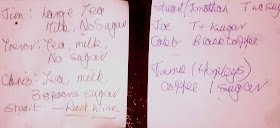 Jim: Large Tea
Milk, No Sugar
Trevor: Tea, milk,
No sugar
Chris: Tea, milk,
3 spoons sugar
Stuart - Red Wine
Stuart/Jonathan Two sug
Joe T + Sugar
Caleb Black coffee
(Hopleys)
coffee 1 sugar